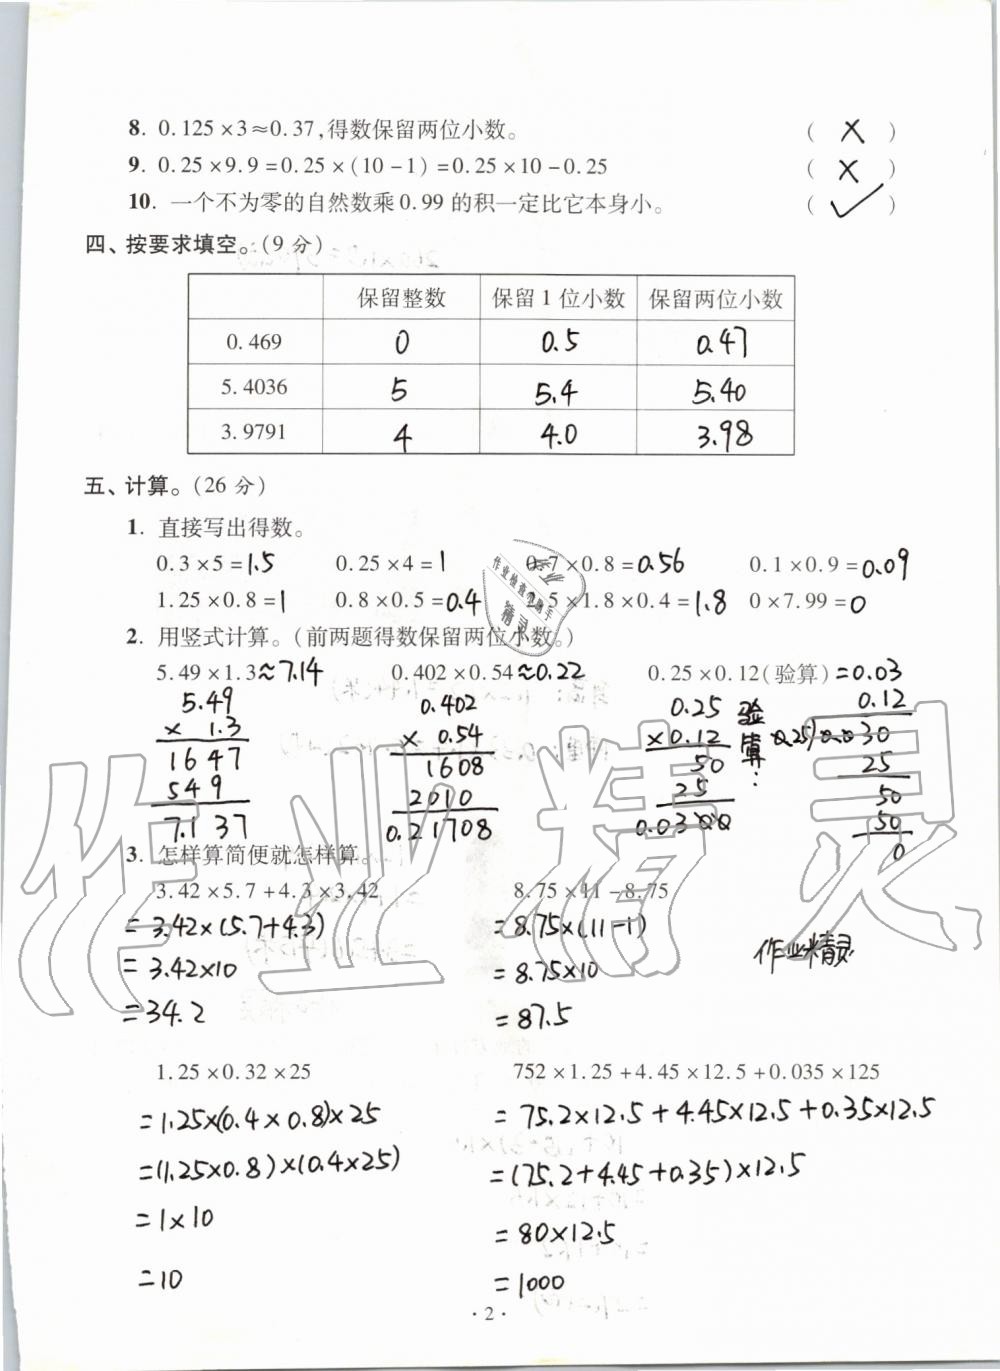 8. 0.125×3≈0.37,得数保留两位小数。 ( × )
9. 0.25×9.9=0.25×(10-1)=0.25×10-0.25 ( × )
10. 一个不为零的自然数乘0.99的积一定比它本身小。 ( ✓ )
四、按要求填空。(9分)
保留整数 保留1位小数 保留两位小数
0.469 0 0.5 0.47
5.4036 5 5.4 5.40
3.9791 4 4.0 3.98
五、计算。(26分)
1. 直接写出得数。
0.3×5=1.5 0.25×4=1 0.7×0.8=0.56 0.1×0.9=0.09
1.25×0.8=1 0.8×0.5=0.4 2.5×1.8×0.4=1.8 0×7.99=0
2. 用竖式计算。(前两题得数保留两位小数。)
5.49×1.3≈7.14 0.402×0.54≈0.22 0.25×0.12(验算)=0.03
5.49 0.402 0.25 验 0.12
× 1.3 × 0.54 ×0.12 算: 0.25)0.030
1647 1608 50 25
549 2010 25 50
7.137 0.21708 0.0300 50
0
3. 怎样算简便就怎样算。
3.42×5.7+4.3×3.42 8.75×11-8.75
=3.42×(5.7+4.3) =8.75×(11-1)
=3.42×10 =8.75×10
=34.2 =87.5
作业精灵
1.25×0.32×25 752×1.25+4.45×12.5+0.035×125
=1.25×(0.4×0.8)×25 =75.2×12.5+4.45×12.5+0.35×12.5
=(1.25×0.8)×(0.4×25) =(75.2+4.45+0.35)×12.5
=1×10 =80×12.5
=10 =1000
·2·
作业精灵
作业检查小助手
精灵